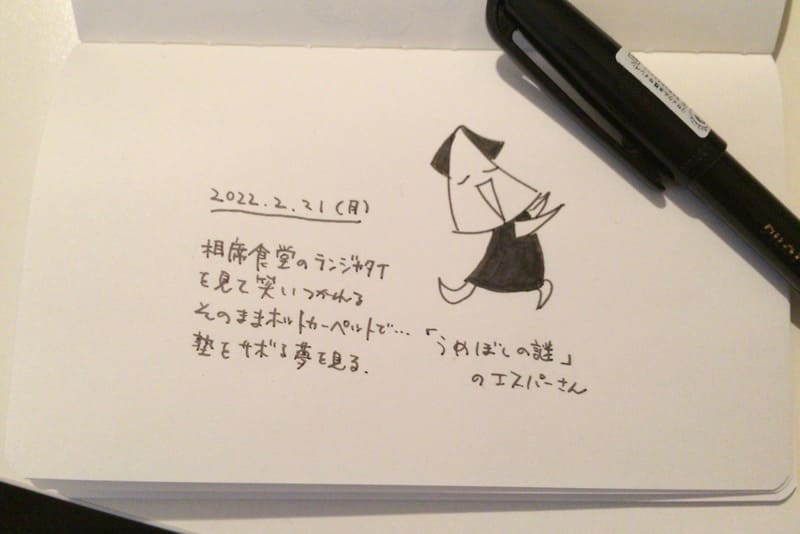 2022.2.21(月)
相席食堂のランジャタイ
を見て笑いつかれる
そのままホットカーペットで…
塾をサボる夢を見る.
「うめぼしの謎」
のエスパーさん